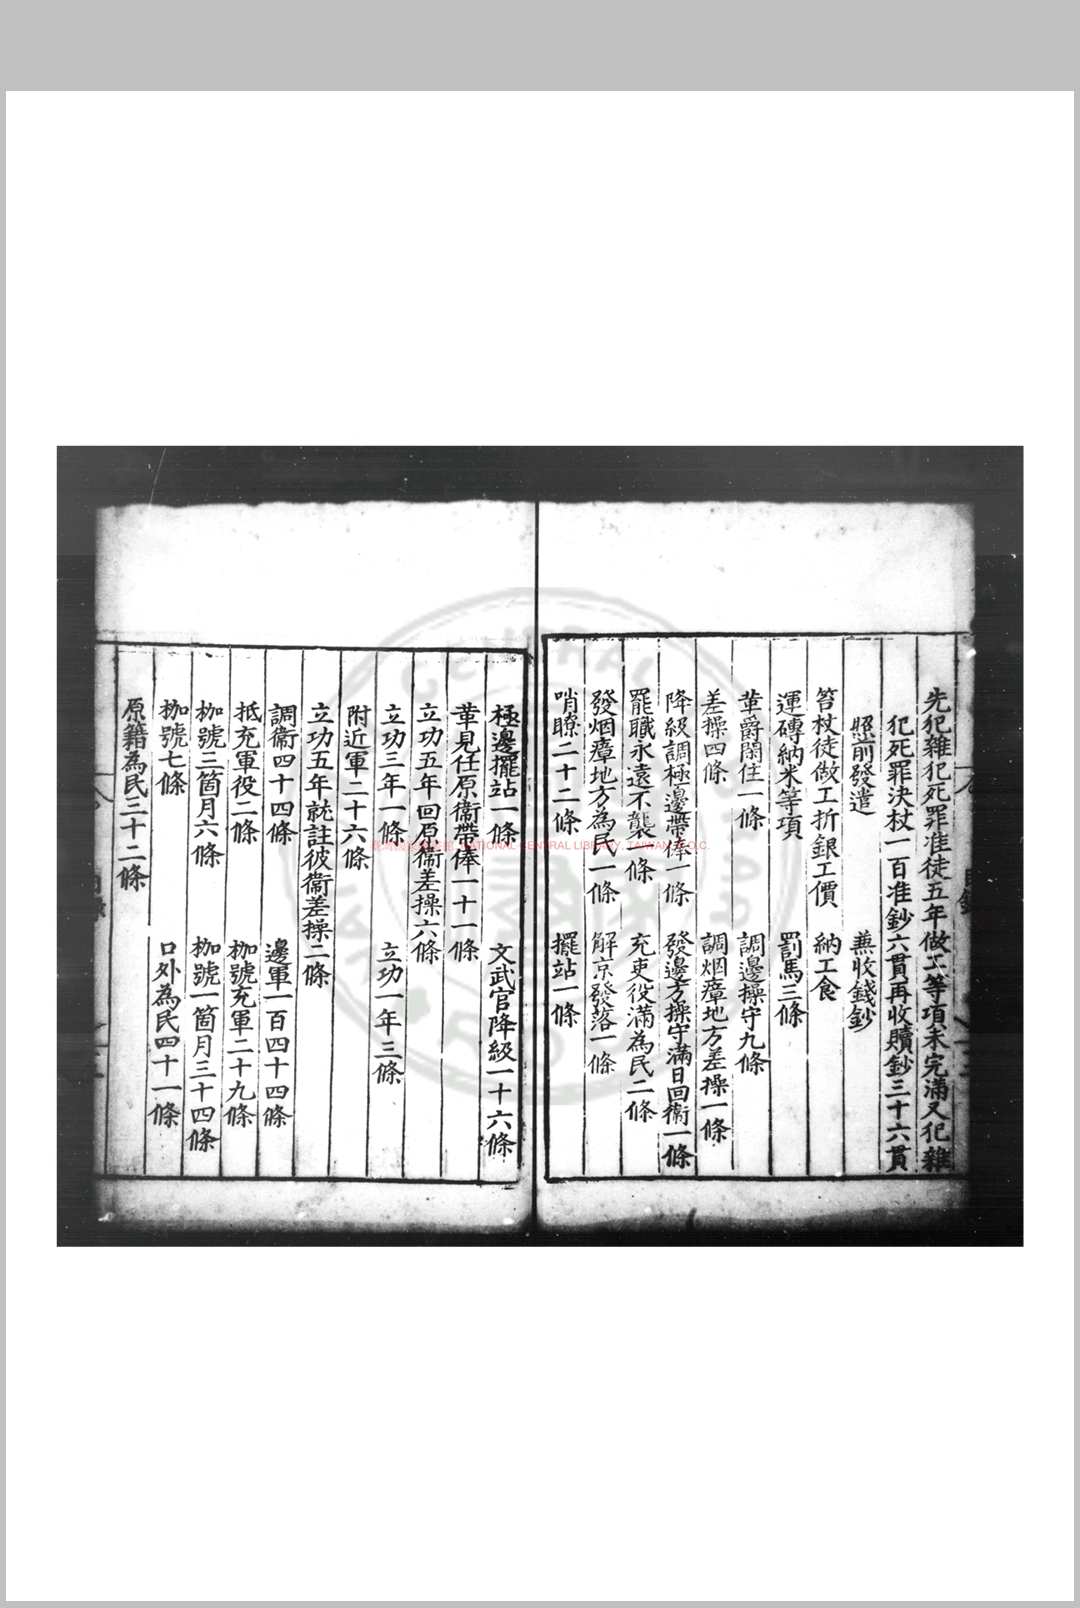 先犯雜犯死罪准徒五年做工等項未完滿又犯雜
犯死罪決杖一百准鈔六貫再收贖鈔三十六貫
照前發遣　蕪收錢鈔
笞杖徒做工折銀工價　納工食
運磚納米等項　罰馬三條
革爵閑住一條　調邊操守九條
差操四條　調烟瘴地方差操一條
降級調極邊帶俸一條　發邊方操守滿日回衛一條
罷職永遠不襲一條　充吏役滿為民二條
發烟瘴地方為民一條　解京發落一條
哨瞭二十二條　擺站一條
極邊擺站一條　文武官降級一十六條
革見任原衞帶俸一十一條
立功五年回原衞差操六條
立功三年一條　立功一年三條
附近軍二十六條
立功五年就註彼衞差操二條
調衞四十四條　邊軍一百四十四條
抵充軍役二條　枷號充軍二十九條
枷號三箇月六條　枷號一箇月三十四條
枷號七條　口外為民四十一條
原籍為民三十二條
NATIONAL CENTRAL LIBRARY, TAIWAN, R.O.C.